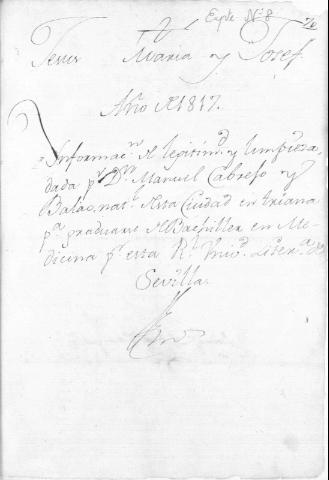 Expte Nº 8
Jesus Maria y Josef
Año de 1817.
Informacn. de legitimd. y limpieza
dada pr. Dn. Manuel Cabrejo y
natl. de esta Ciudad en triana
pa. graduarse de Bachiller en Me-
dicina pr. esta Rl. Univd. Liter.a de
Sevilla.